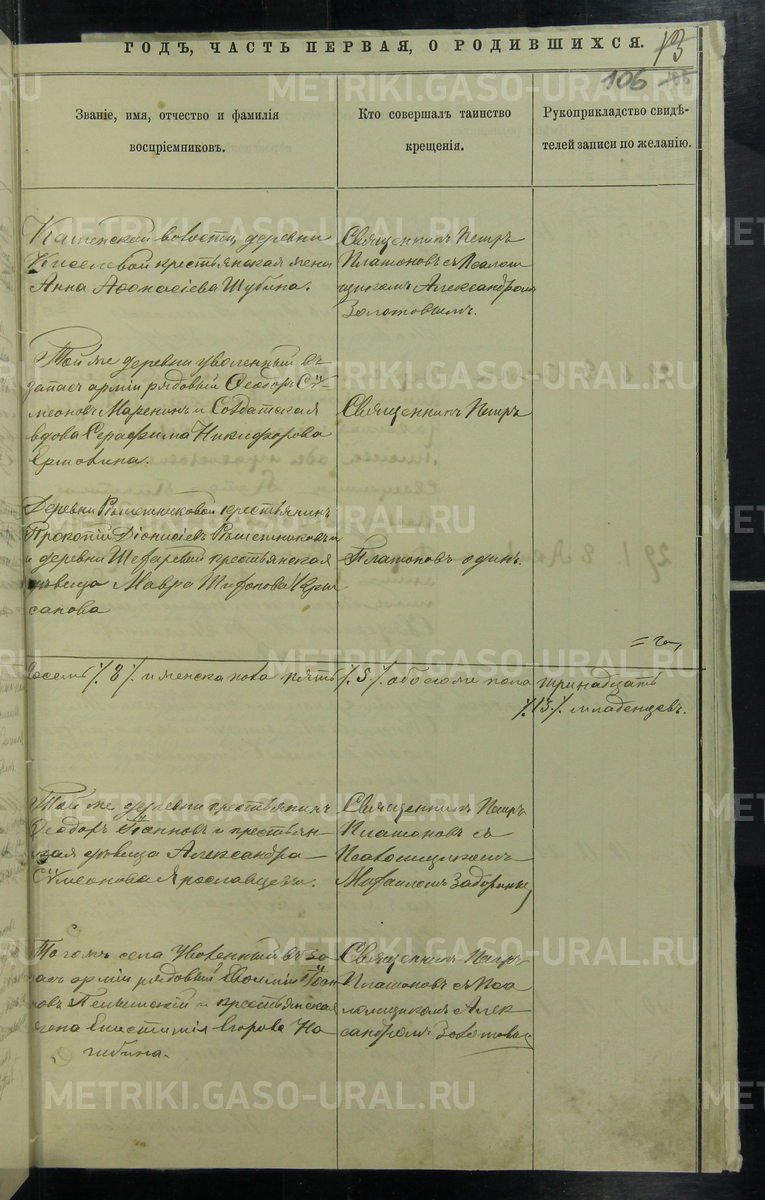 ГОДЪ, ЧАСТЬ ПЕРВАЯ, О РОДИВШИХСЯ.
13
106
Званіе, имя, отчество и фамилія
воспріемниковъ.
Кто совершалъ таинство
крещенія.
Рукоприкладство свидѣ-
телей записи по желанію.
Каменской волости, деревни
Киселевой крестьянская жена
Анна Аѳонасіева Шубина.
Священникъ Петръ
Платоновъ съ Псалом
щикомъ Александромъ
Золотовымъ.
Той же деревни уволенный въ
запасъ арміи рядовый Ѳеодоръ Сѵ-
меоновъ Маренинъ и Солдатская
вдова Серафима Никифорова
Священникъ Петръ
Деревни крестьянинъ
Прокопій Діонисіевъ
и деревни крестьянская
дѣвица Мавра
Платоновъ одинъ.
восемь /. 8 /. и женска пола пять /. 5 /. обоего пола тринадцать
/. 13 /. младенцевъ.
Той же деревни крестьянинъ
Ѳеодоръ Іоанновъ и крестьян
ская дѣвица Александра
Сѵмеонова Ярославцевы.
Священникъ Петръ
Платоновъ съ
Псаломщикомъ
Михаиломъ
Тогожъ села Уволенный въ за
пасъ арміи рядовый Евѳимій Іоан
новъ и крестьянская
жена Епистимія Егорова На
гибина.
Священникъ Петръ
Платоновъ съ Пса
ломщикомъ Алек
сандромъ Золотовы
METRIKI.GASO-URAL.RU